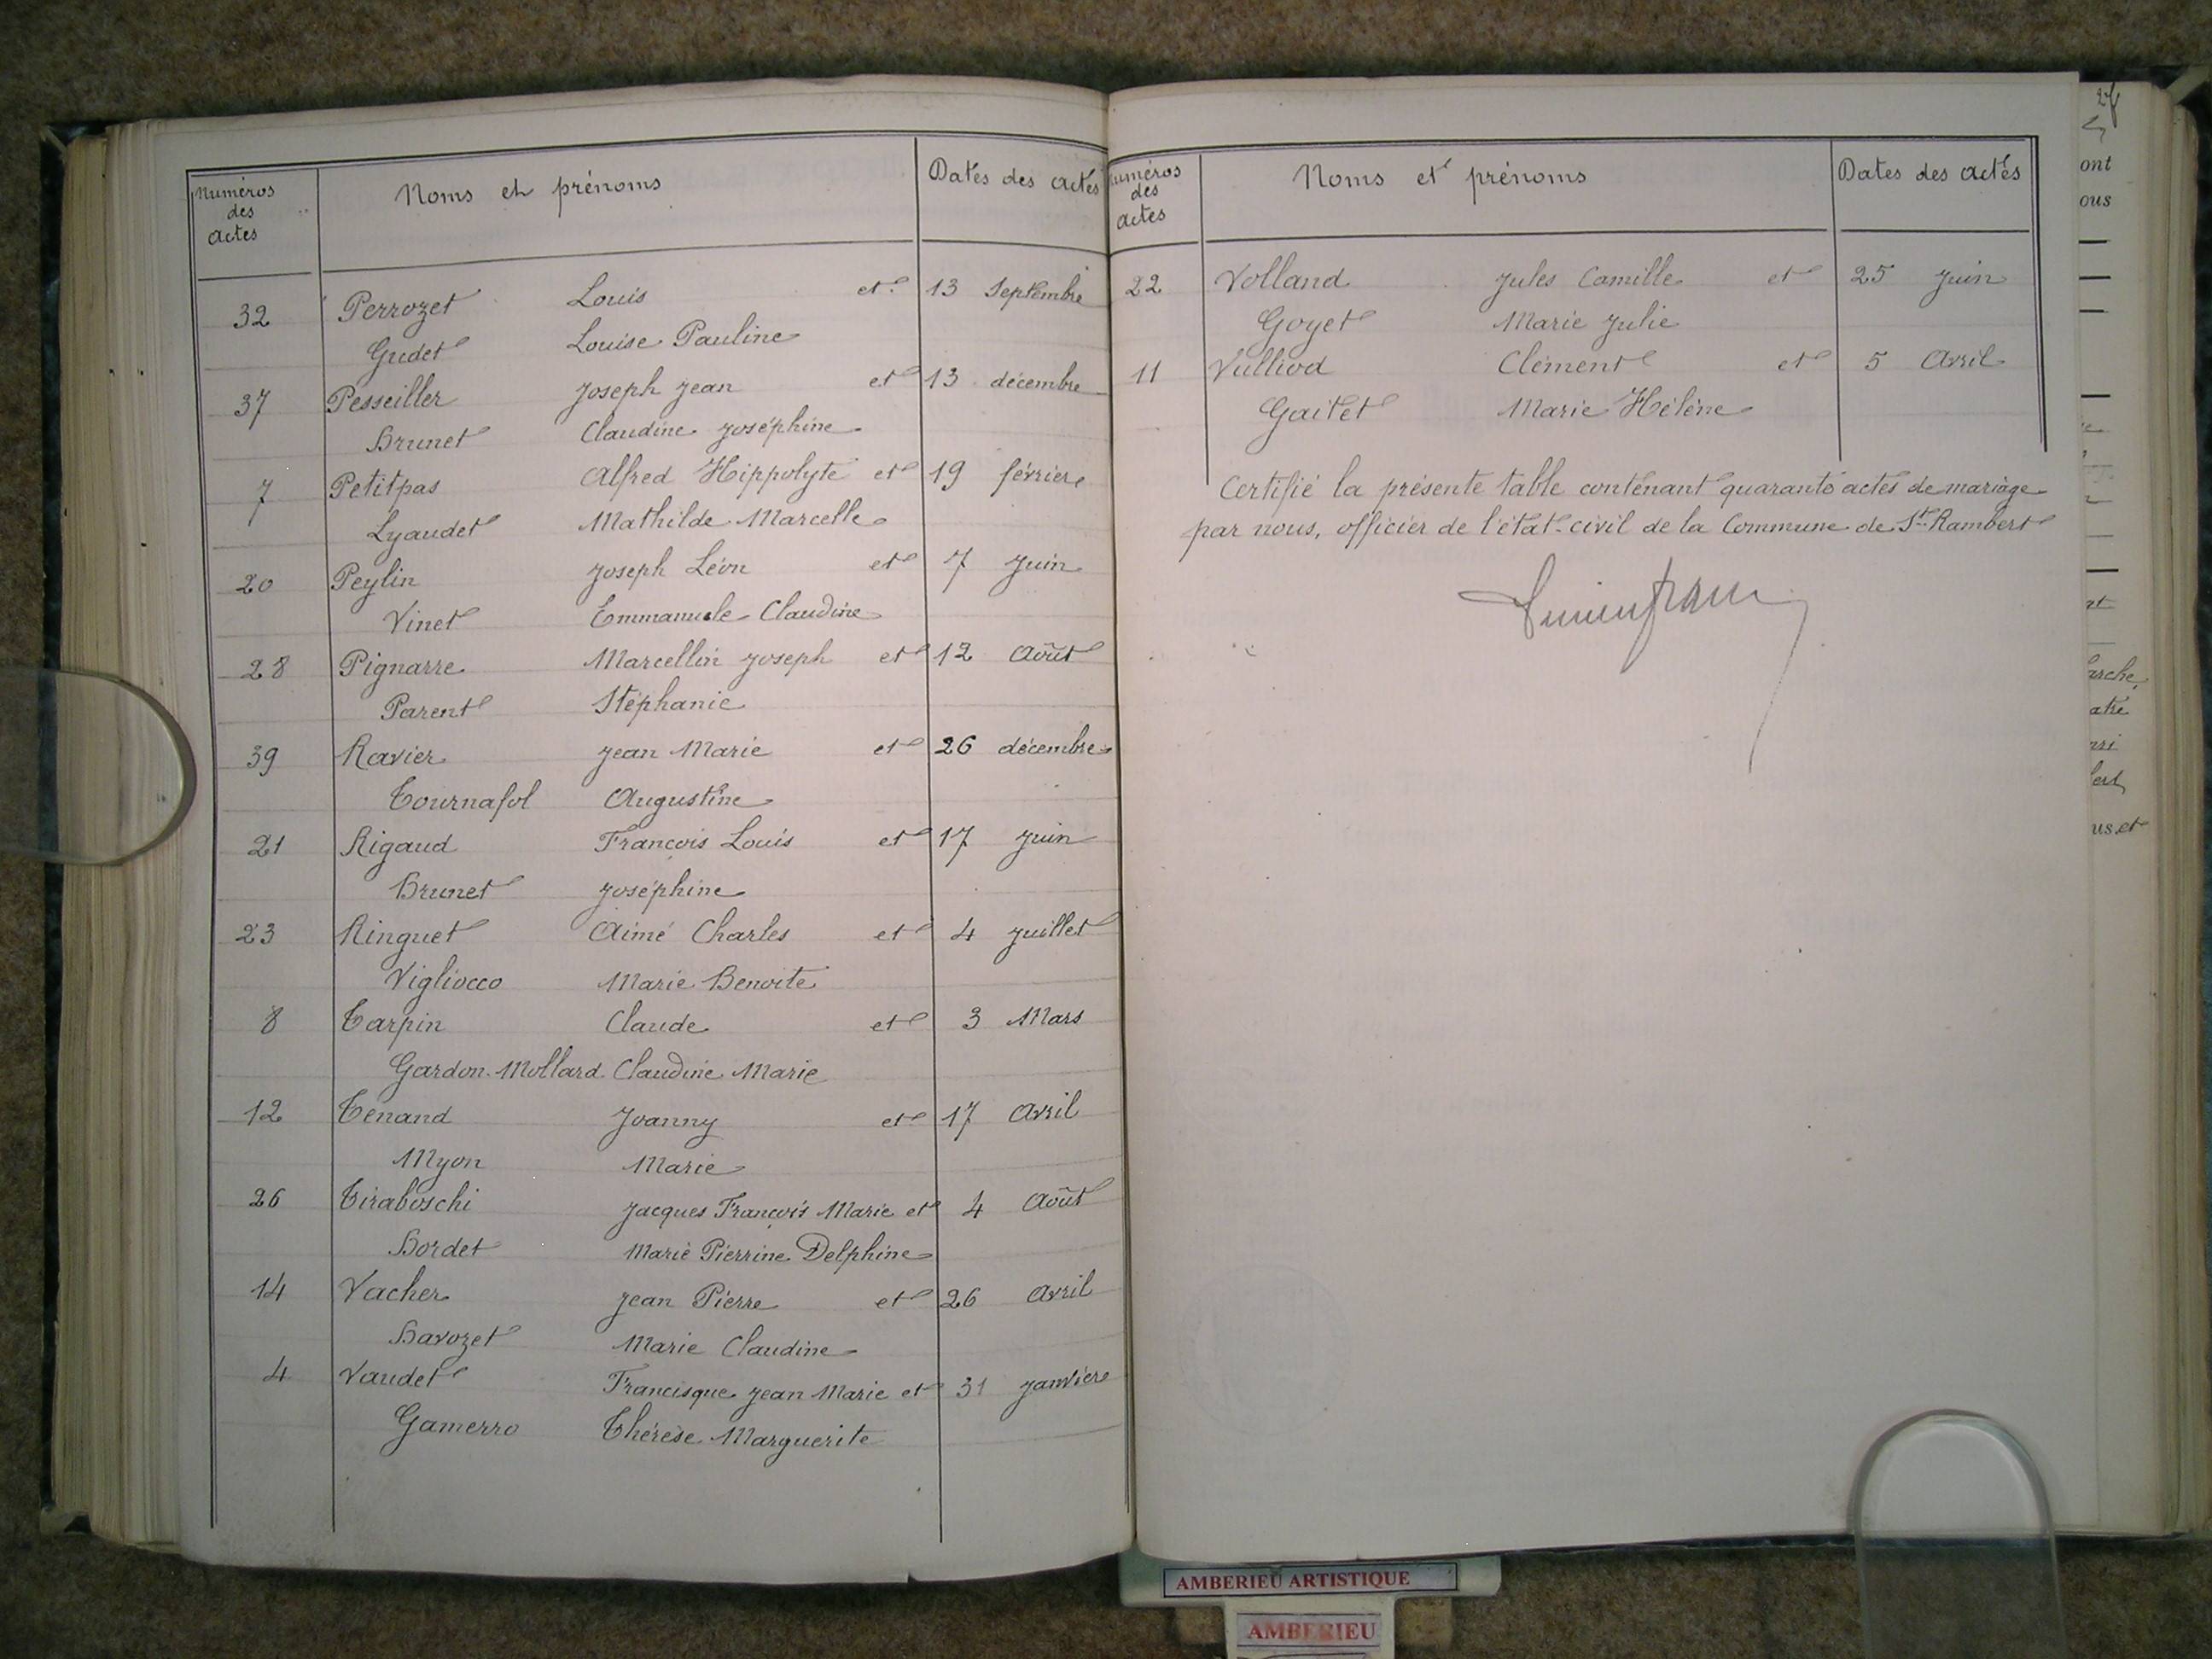 Numéros des actes Noms et prénoms Dates des actes
32 Perrozet Louis et 13 Septembre
Gudet Louise Pauline
37 Pesseiller Joseph Jean et 13 décembre
Brunet Claudine Joséphine
7 Petitpas Alfred Hippolyte et 19 février
Lyaudet Mathilde Marcelle
20 Peylin Joseph Léon et 7 Juin
Vinet Emmanuele Claudine
28 Pignarre Marcellin Joseph et 12 Août
Parent Stéphanie
39 Ravier Jean Marie et 26 décembre
Tournafol Augustine
21 Rigaud François Louis et 17 Juin
Brunet Joséphine
23 Ringuet Aimé Charles et 4 Juillet
Vigliocco Marie Benoite
8 Tarpin Claude et 3 Mars
Gardon-Mollard Claudine Marie
12 Tenand Joanny et 17 Avril
Myon Marie
26 Tiraboschi Jacques François Marie et 4 Août
Bordet Marie Pierrine Delphine
14 Vacher Jean Pierre et 26 Avril
Bavozet Marie Claudine
4 Vaudet Francisque Jean Marie et 31 Janvier
Gamerro Thérèse Marguerite
Numéros des actes Noms et prénoms Dates des actes
22 Volland Jules Camille et 25 Juin
Goyet Marie Julie
11 Vulliod Clément et 5 Avril
Gaitet Marie Hélène
Certifié la présente table contenant quarante actes de mariage
par nous, officier de l'état-civil de la Commune de St Rambert
ont
ous
arche,
us et
AMBERIEU ARTISTIQUE
AMBERIEU